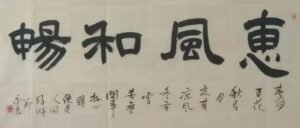 惠風和暢
春有
百花
秋有
月
夏有
凉風
冬有
雪
若無
閒事
挂心
頭
便是
人間
好時
節